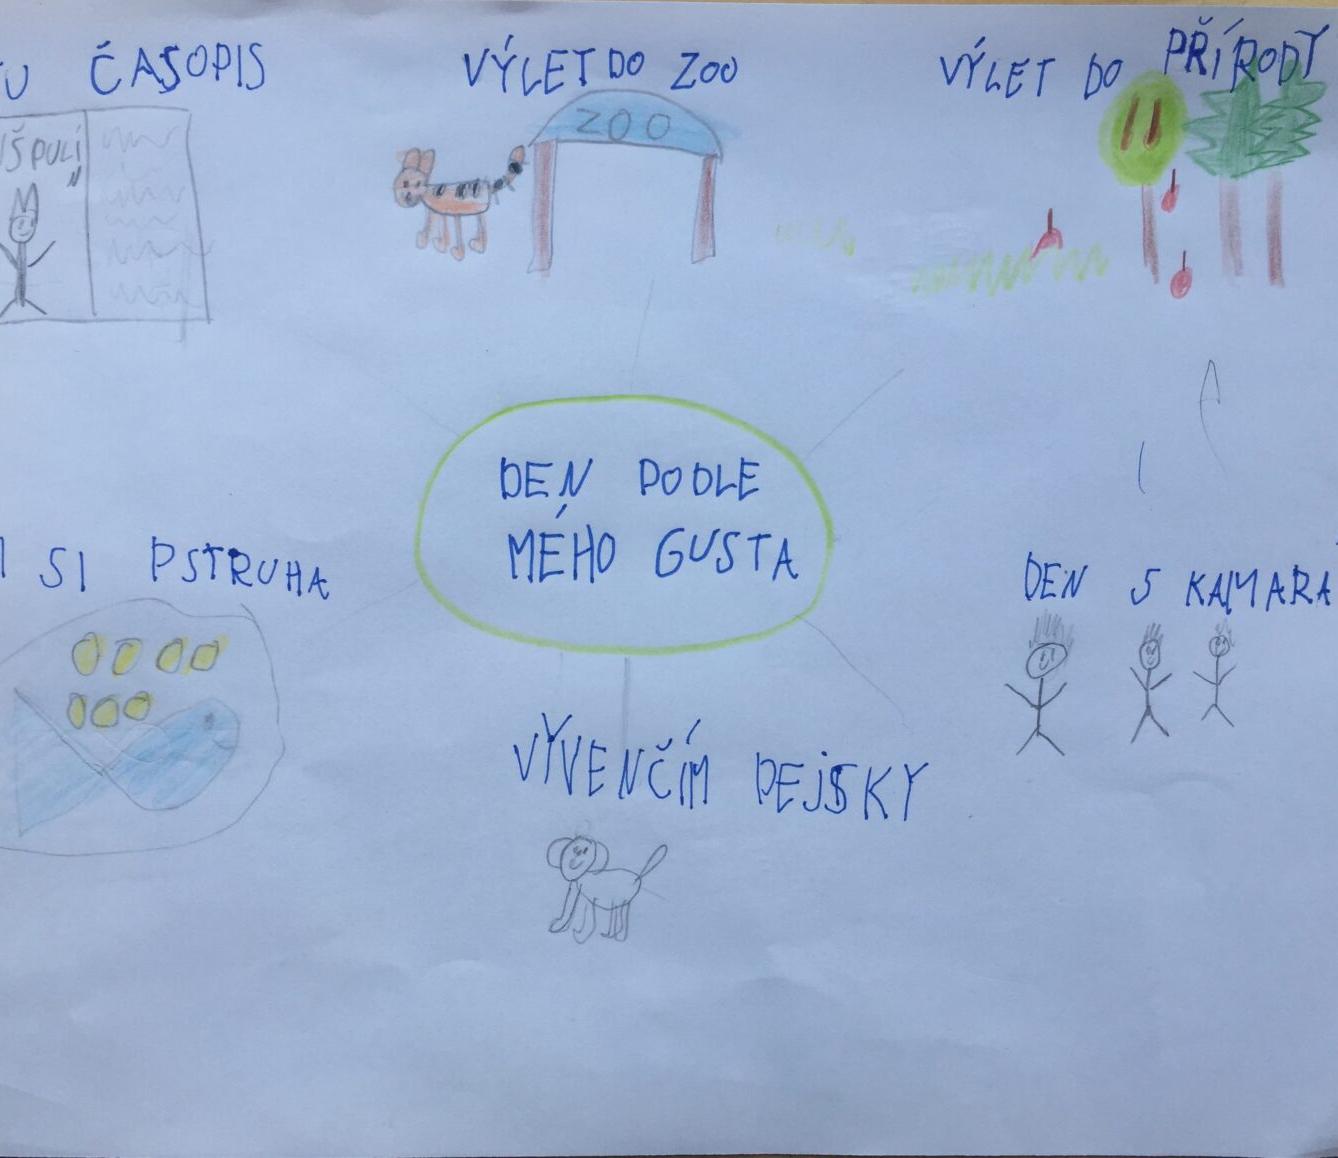 U ČASOPIS
VÝLET DO ZOO
VÝLET DO PŘÍRODY
ŠPULÍN
ZOO
DEN PODLE
MÉHO GUSTA
SI PSTRUHA
DEN S KAMARA
VYVENČÍM PEJSKY